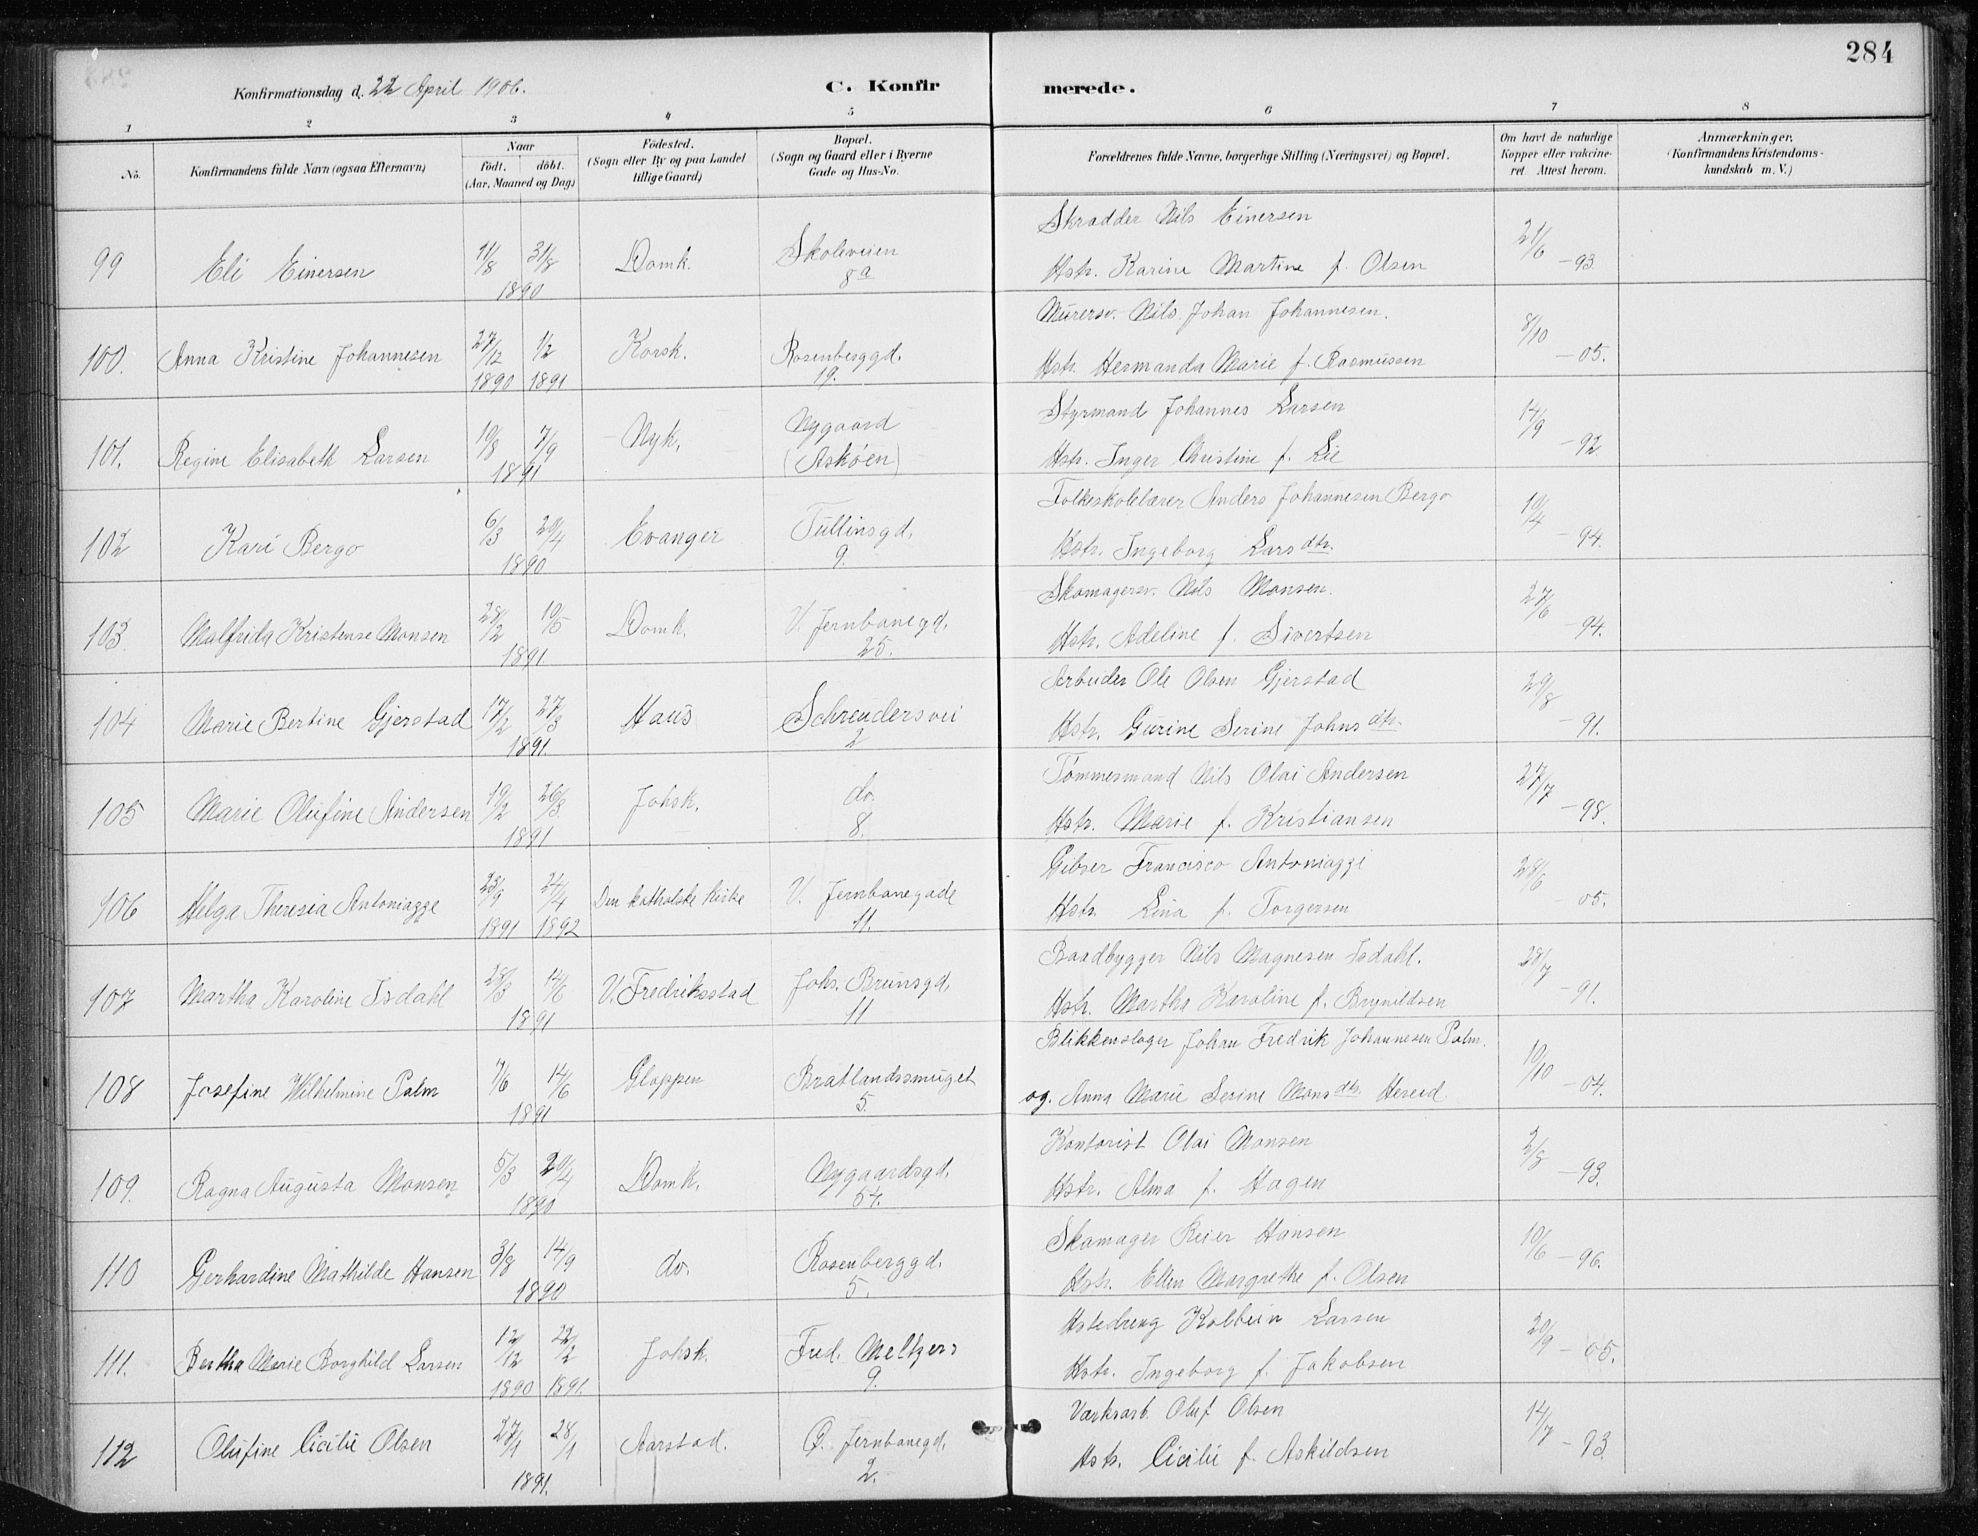 284
Konfirmationsdag d. 22 April 1906.
C. Konfirmerede.
1 2 3 4 5 6 7 8
No.
Konfirmandens fulde Navn (ogsaa Efternavn)
Naar
födt. döbt.
(Aar, Maaned og Dag)
Födested.
(Sogn eller By og paa Landet
tillige Gaard)
Bopæl.
(Sogn og Gaard eller i Byerne
Gade og Hus-No.
Forældrenes fulde Navne, borgerlige Stilling (Næringsvei) og Bopæl.
Om havt de naturlige
Kopper eller vakcine-
ret. Attest herom.
Anmærkninger.
(Konfirmandens Kristendoms-
kundskab m. V.)
99 Eli Einersen 11/8 31/8 1890 Domk. Skoleveien 8a
Skrædder Nils Einersen
Hstr. Karine Martine f. Olsen 21/6 - 93.
100. Anna Kristine Johannesen 27/12 1890 1/2 1891 Korsk. Rosenberggd. 19.
Murersv. Nils Johan Johannesen.
Hstr. Hermanda Marie f. Rasmussen 8/10 - 05.
101. Regine Elisabeth Larsen 10/8 7/9 1891 Nyk. Nygaard (Askøen)
Styrmand Johannes Larsen
Hstr. Inger Christine f. Lie 14/9 - 92
102 Kari Bergo 6/3 20/4 1890 Evanger Tullinsgd. 9.
Folkeskolelærer Anders Johannesen Bergo
Hstr. Ingeborg Larsdtr. 10/4 - 94.
103. Malfrida Kristense Monsen 28/2 10/5 1891 Domk. V. Jernbanegd. 25.
Skomagersv. Nils Monsen.
Hstr. Adeline f. Sivertsen 27/6 - 94.
104 Marie Bertine Gjerstad 17/2 27/3 1891. Haus Schreudersvei 2
Arbeider Ole Olsen Gjerstad
Hstr. Gurine Serine Johnsdtr. 29/8 - 91.
105 Marie Olufine Andersen 19/2 26/3 1891 Johsk. do. 8.
Tømmermand Nils Olai Andersen
Hstr. Marie f. Kristiansen 27/7 - 98.
106 Helga Theresia Antoniazzi 23/9 1891 24/4 1892 Den katholske Kirke V. Jernbanegade 11.
Gibser Francisco Antoniazzi
Hstr. Lina f. Torgersen 28/6 - 05.
107 Martha Karoline Isdahl 28/3 14/6 1891 V. Fredriksstad Johs. Brunsgd. 11
Baadbygger Nils Magnesen Isdahl.
Hstr. Martha Karoline f. Brynildsen 28/7 - 91.
108 Josefine Wilhelmine Palm 7/6 14/6 1891 Gloppen Bratlandssmuget 5.
Blikkenslager Johan Fredrik Johannesen Palm.
og. Anna Marie Serine Monsdtr. 10/10 - 04.
109. Ragna Augusta Monsen 5/3 20/4 1890 Domk. Nygaardsgd. 54.
Kontorist Olai Monsen
Hstr. Alma f. Hagen 2/8 - 93.
110 Gerhardine Mathilde Hansen 3/8 14/9 1890 do. Rosenberggd. 5.
Skomager Reier Hansen
Hstr. Ellen Margrethe f. Olsen 10/6 - 96.
111. Bertha Marie Borghild Larsen 12/12 1890 22/2 1891. Johsk. Fred. Meltzers 9.
Kolbein Larsen
Hstr. Ingeborg f. Jakobsen 20/9 - 05.
112 Olufine Cicilie Olsen 27/1 28/1 1891. Aarstad. Ø. Jernbanegd. 2.
Værksarb. Oluf Olsen
Hstr. Cicilie f. Askildsen 14/7 - 93.